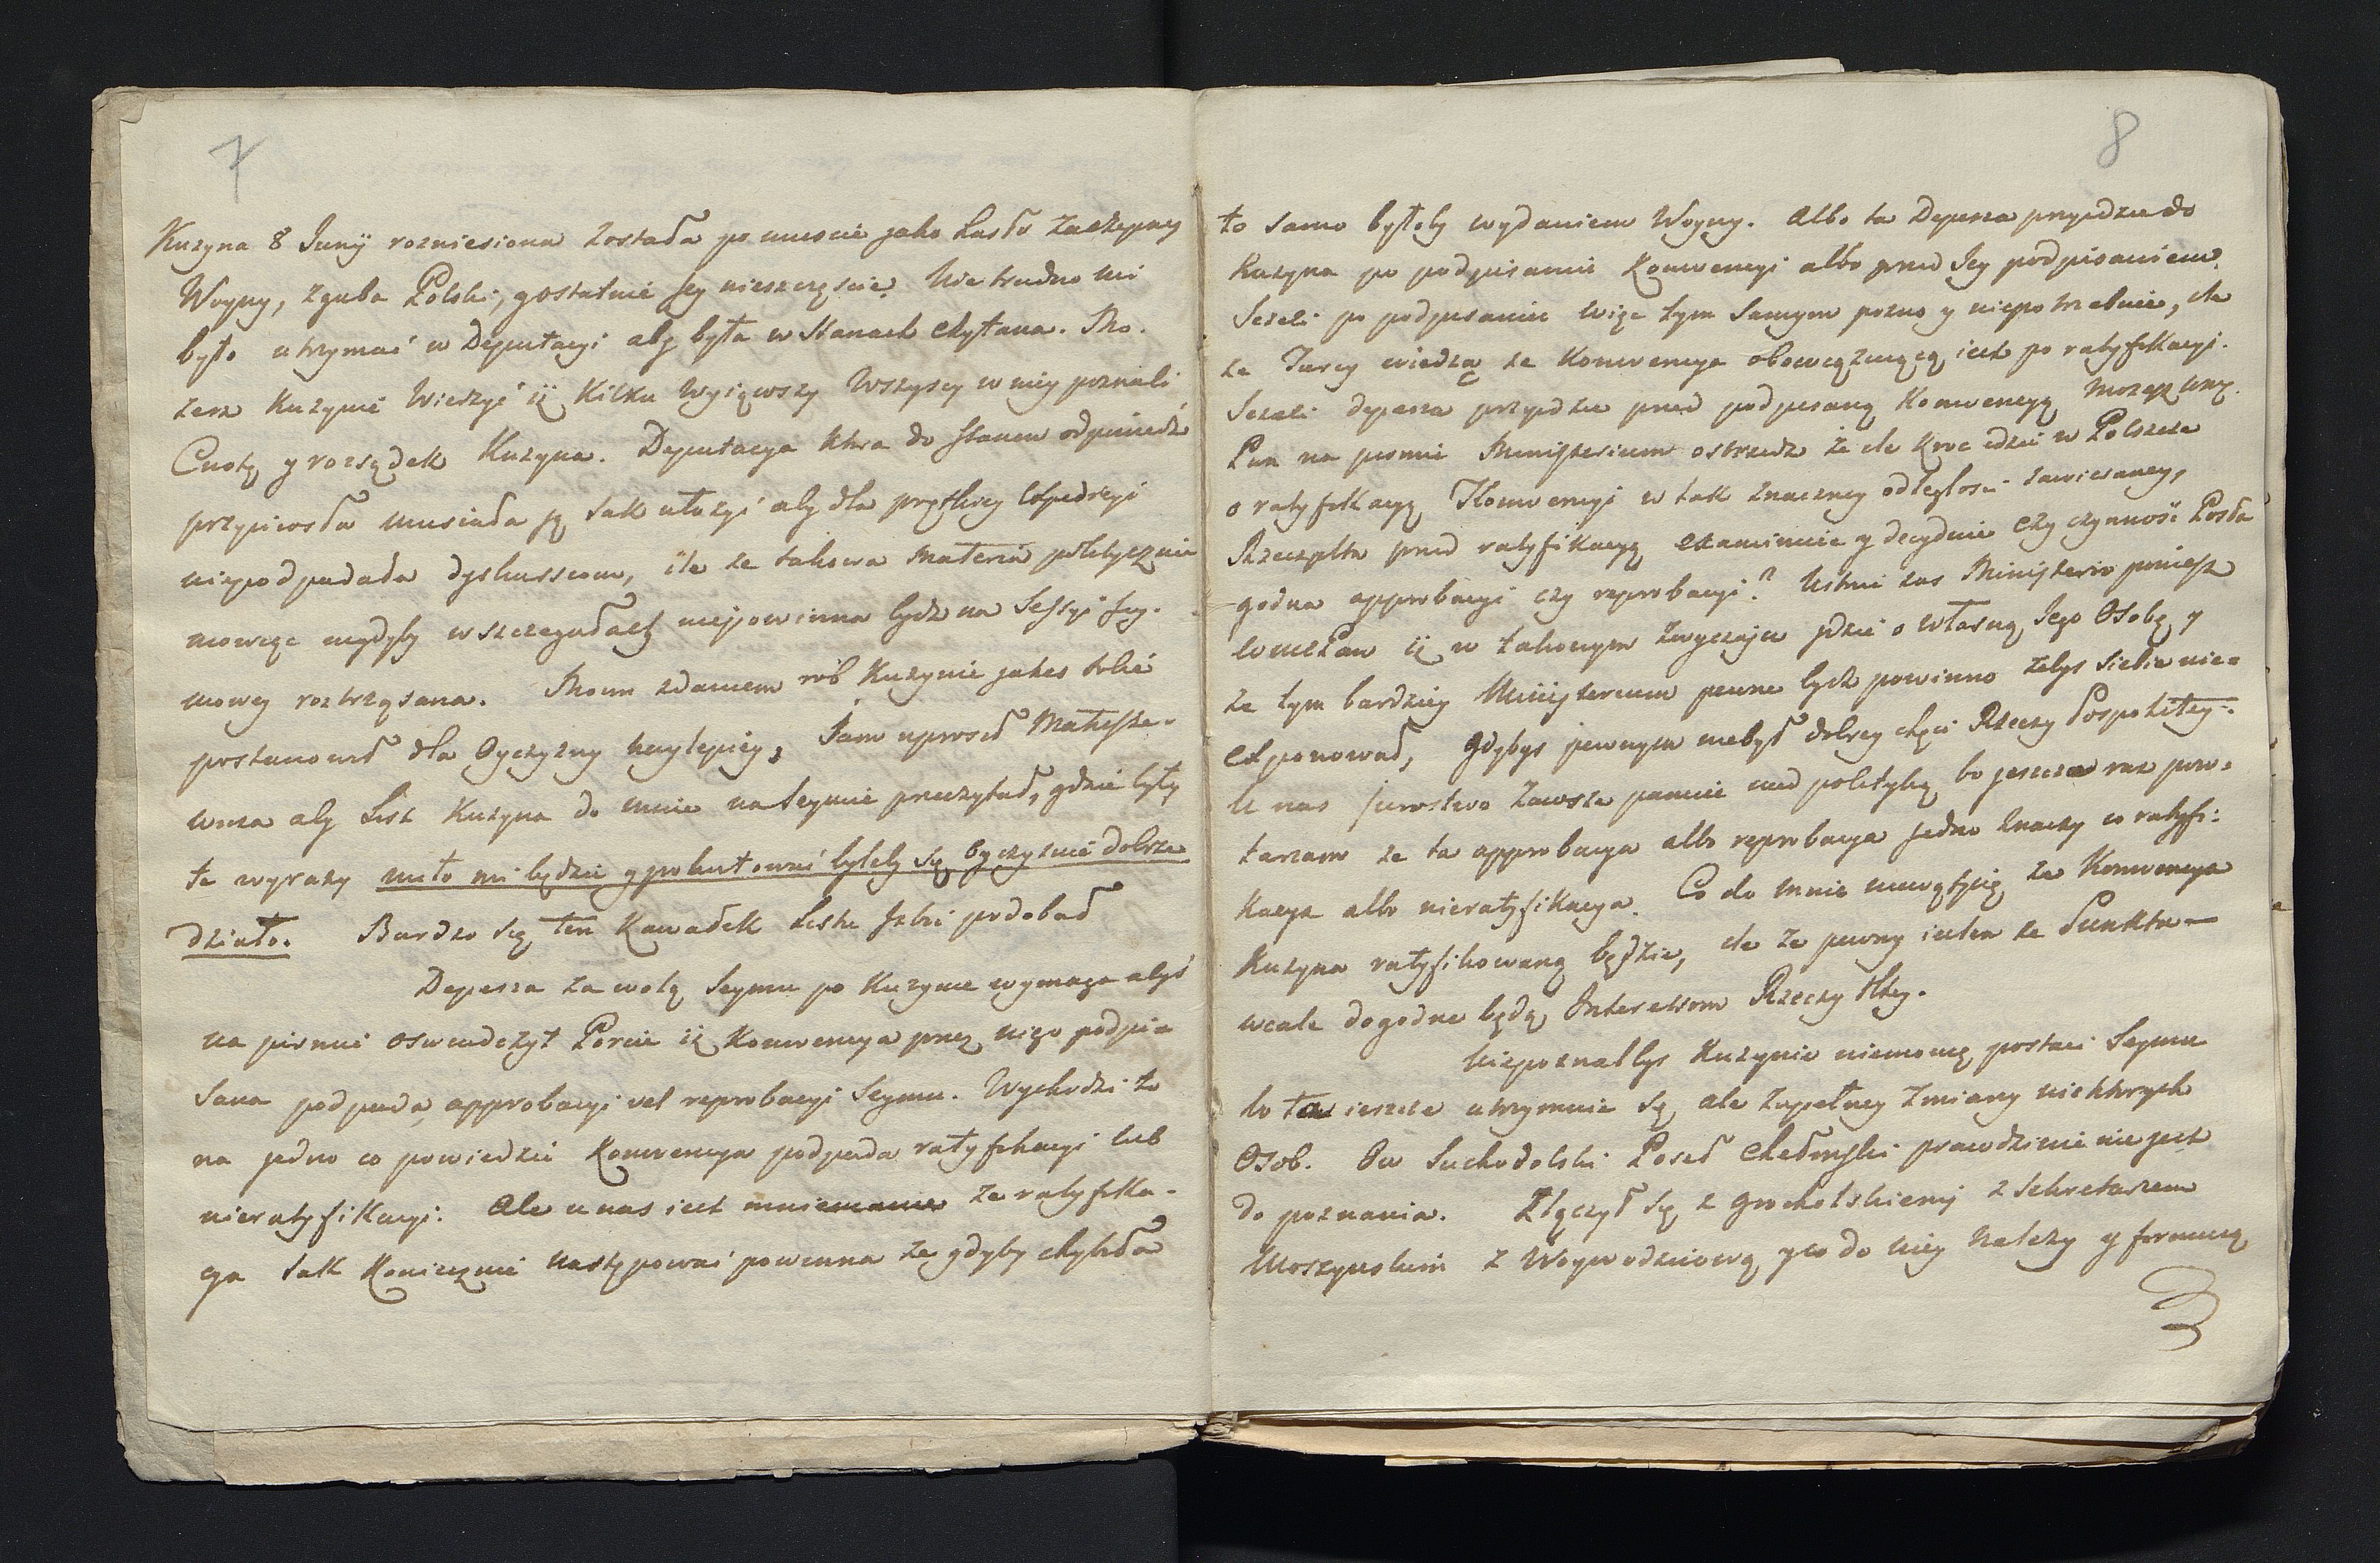 7
Kuzyna 8 Junÿ rozniesiona została po miescie jako hasło zaczepney
Woyny, zguba Polski, y ostatnie Jey nieszczęscie. Nie trudno mi
było utrzymać w Deputacyi aby była w Stanach czytana. Mo-
żesz Kuzynie wierzyć iż kilku wyiąwszy wszyscy w niey poznali
Cnotę y rozsądek Kuzyna. Deputacya ktora do Stanow odpowiedz
przyniosła musiała ją tak ułożyć aby dla prętkiey Expedycyi
niepodpadała dyskussiom, ile że takowa materia politycznie
mowiąc nigdyby w szczegułach niepowinna bydz na Sessyi Sey-
mowey roztrząsana. Moim zdaniem rob Kuzynie jakes sobie
postanowił dla Oyczyzny naylepiey, Jam uprosił Małachow-
wnia aby List Kuzyna do mnie na Seymie przeczytał, gdzie były
te wyrazy miło mi będzie y pokutować byleby się Oyczyznie dobrze
działo. Bardzo się ten kawałek listu Izbie podobał
Depesza za wolą Seymu po Kuzynie wymaga abyś
na pismie oswiadczył Porcie iż Konwencya przez niego podpi-
sana podpada approbacyi vel reprobacyi Seymu. Wychodzi to
na jedno co powiedzieć Konwencya podpada ratyfikacyi lub
nieratyfikacyi. Ale u nas iest mniemanie że ratyfika-
cya tak koniecznie następować powinna że gdyby chybiła
8
to samo byłoby wydaniem Woyny. Albo ta Depesza przyjdzie do
Kuzyna po podpisaniu Konwencyi albo przed Jey podpisaniem.
Jeżeli po podpisaniu więc tym samym pozno y niepotrzebnie, ile
że Turcy wiedzą że Konwencya obowiązującą iest po ratyfikacyi.
Jeżeli depesza przyjdzie przed podpisaną Konwencyą możesz Wny
Pan na pismie Ministerium ostrzedz że ile kroc idzie w Polszcze
o ratyfikacyą Konwencyi w tak znaczney odległosci zawieraney,
Rzeczplta przed ratyfikacyą examinuie y decyduie czy czynność Posła
godna approbacyi czy reprobacyi? Ustnie zas Ministerio
iż w takowym zwyczaju jdzie o własną Jego Osobę y
że tym bardziey Ministerium pewne bydz powinno żebys siebie nie-
exponował, gdybys pewnym niebył dobrey chęci Rzeczy Pospolitey.
U nas jurostwo zawsze panuie nad polityką, bo jeszcze raz pow-
tarzam że ta approbacya albo reprobacya jedno znaczy co ratyfi-
kacya albo nieratyfikacya. Co do mnie niewątpię że Konwencya
Kuzyna ratyfikowaną będzie, ile że pewny iestem że Punkta
wcale dogodne będą Interessom Rzeczy Pltey.
Niepoznałbys Kuzynie niemowię postaci Seymu
bo ta ieszcze utrzymuie się, ale zupełney zmiany niektorych
Osob. Ow Suchodolski Poseł Chełmski prawdziwie nie jest
do poznania. Złączył się z Grocholskiemi z Sekretarzem
Moszynskim z Woyewodzicową y co do niey należy y formuią